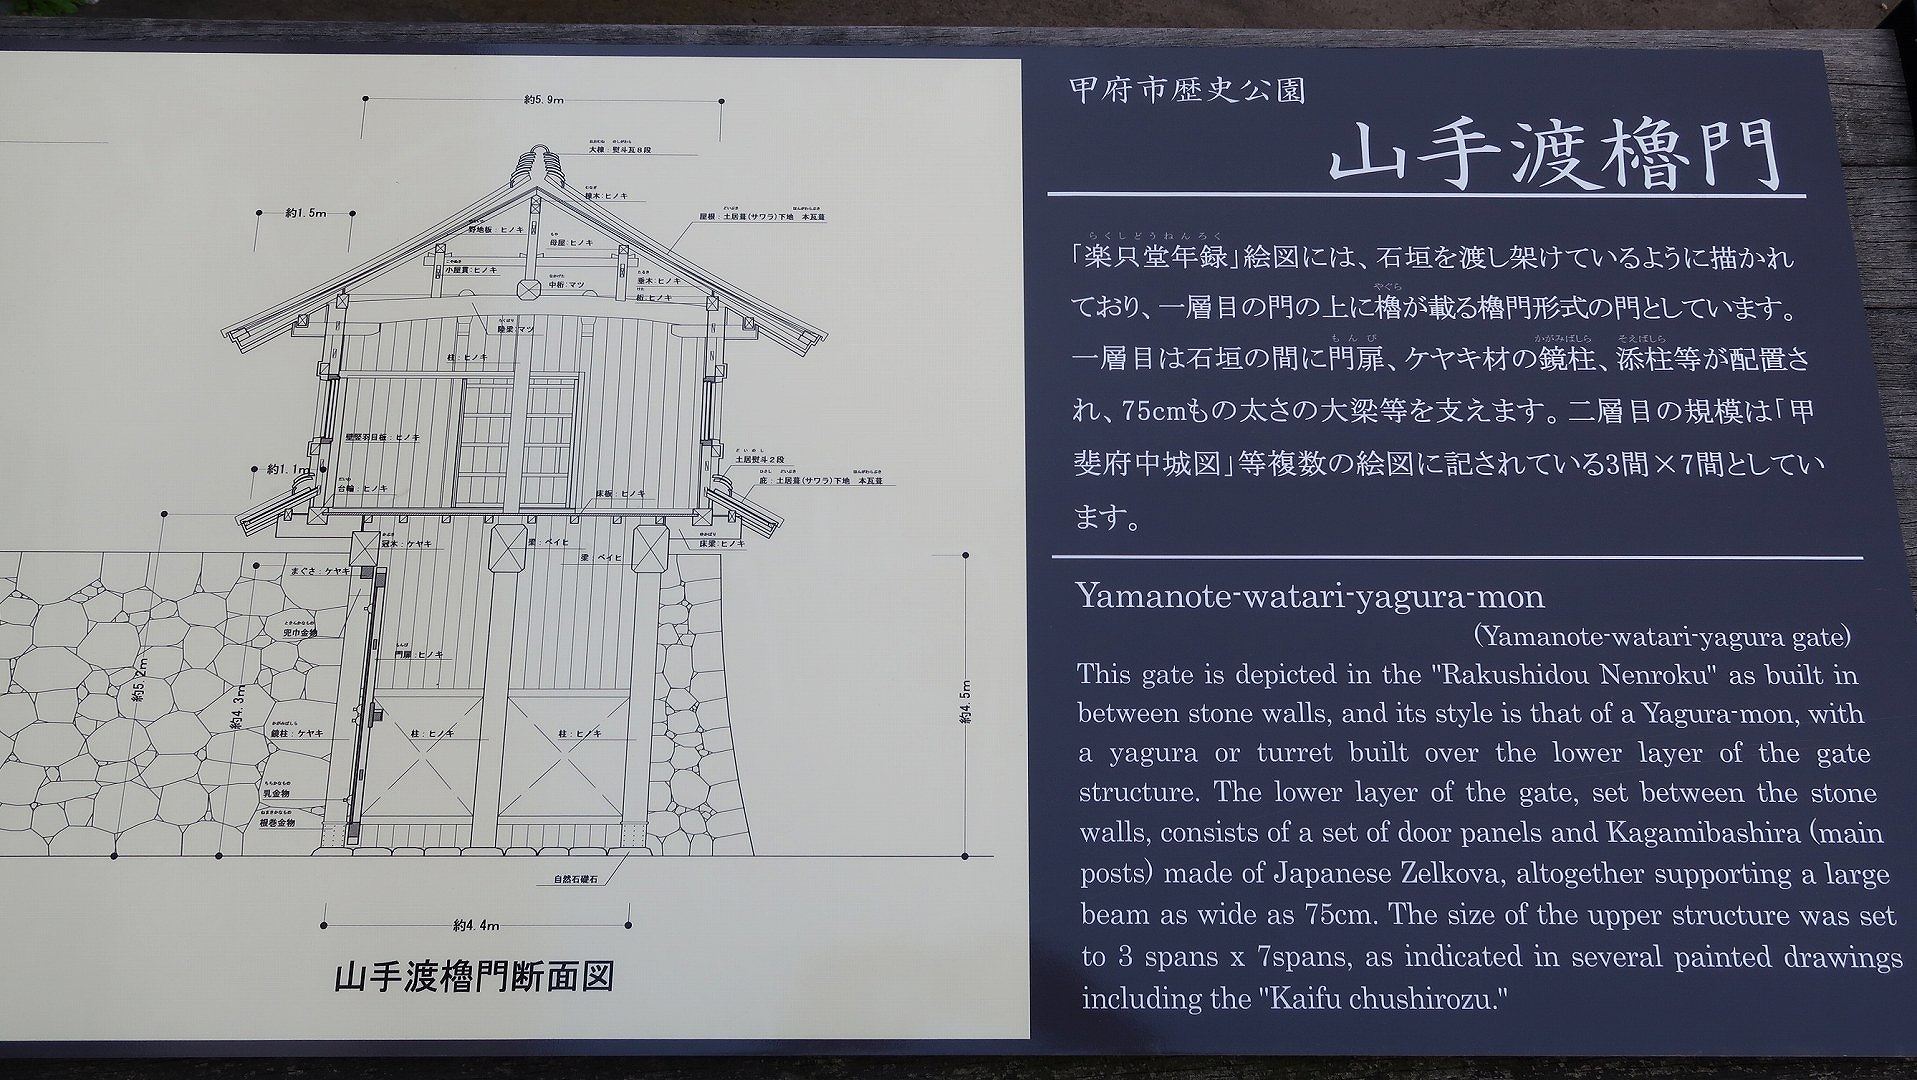 約5.9m
大棟：熨斗瓦８段
棟木：ヒノキ
約1.5m
屋根：土居葺(サワラ)下地　本瓦葺
野地板：ヒノキ
母屋：ヒノキ
小屋貫：ヒノキ
中桁：マツ
垂木：ヒノキ
桁：ヒノキ
陸梁：マツ
柱：ヒノキ
壁竪羽目板：ヒノキ
土居熨斗２段
約1.1m
庇：土居葺(サワラ)下地　本瓦葺
台輪：ヒノキ
床板：ヒノキ
冠木：ケヤキ
梁：ベイヒ
床梁：ヒノキ
梁：ベイヒ
まぐさ：ケヤキ
兜巾金物
門扉：ヒノキ
約5.2m
約4.3m
約4.5m
鏡柱：ケヤキ
柱：ヒノキ
柱：ヒノキ
乳金物
根巻金物
自然石礎石
約4.4m
山手渡櫓門断面図
甲府市歴史公園
山手渡櫓門
らくしどうねんろく
「楽只堂年録」絵図には、石垣を渡し架けているように描かれ
やぐら
ており、一層目の門の上に櫓が載る櫓門形式の門としています。
もんぴ　かがみばしら　そえばしら
一層目は石垣の間に門扉、ケヤキ材の鏡柱、添柱等が配置さ
れ、75cmもの太さの大梁等を支えます。二層目の規模は「甲
斐府中城図」等複数の絵図に記されている3間×7間としてい
ます。
Yamanote-watari-yagura-mon
(Yamanote-watari-yagura gate)
This gate is depicted in the "Rakushidou Nenroku" as built in
between stone walls, and its style is that of a Yagura-mon, with
a yagura or turret built over the lower layer of the gate
structure. The lower layer of the gate, set between the stone
walls, consists of a set of door panels and Kagamibashira (main
posts) made of Japanese Zelkova, altogether supporting a large
beam as wide as 75cm. The size of the upper structure was set
to 3 spans x 7spans, as indicated in several painted drawings
including the "Kaifu chushirozu."